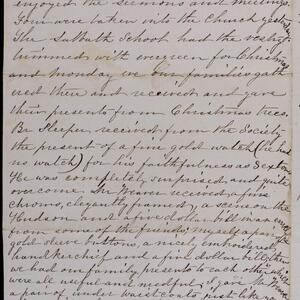 enjoyed the sermons and meetings.
Four were taken into the Church yesterday
The Sabbath School had the vestry
trimmed with evergreen for Christmas
and Monday we our families gath
ered there and received and gave
their presents from Christmas trees.
Br Sleeper received from the Society
the present of a fine gold watch (he had
no watch) for his faithfulness as Sexton
He was completely surprised and quite
overcome. Mr received a fine
chromo, elegantly framed, a scene on the
Hudson and a five dollar bill in an envelope
from some of the friends; myself a pair of
gold sleeve buttons, a nicely embroidered
handkerchief and a five dollar bill, then
we had our family presents to each other, which
were all useful and needful. I gave Mr
a pair of under waistcoats just like